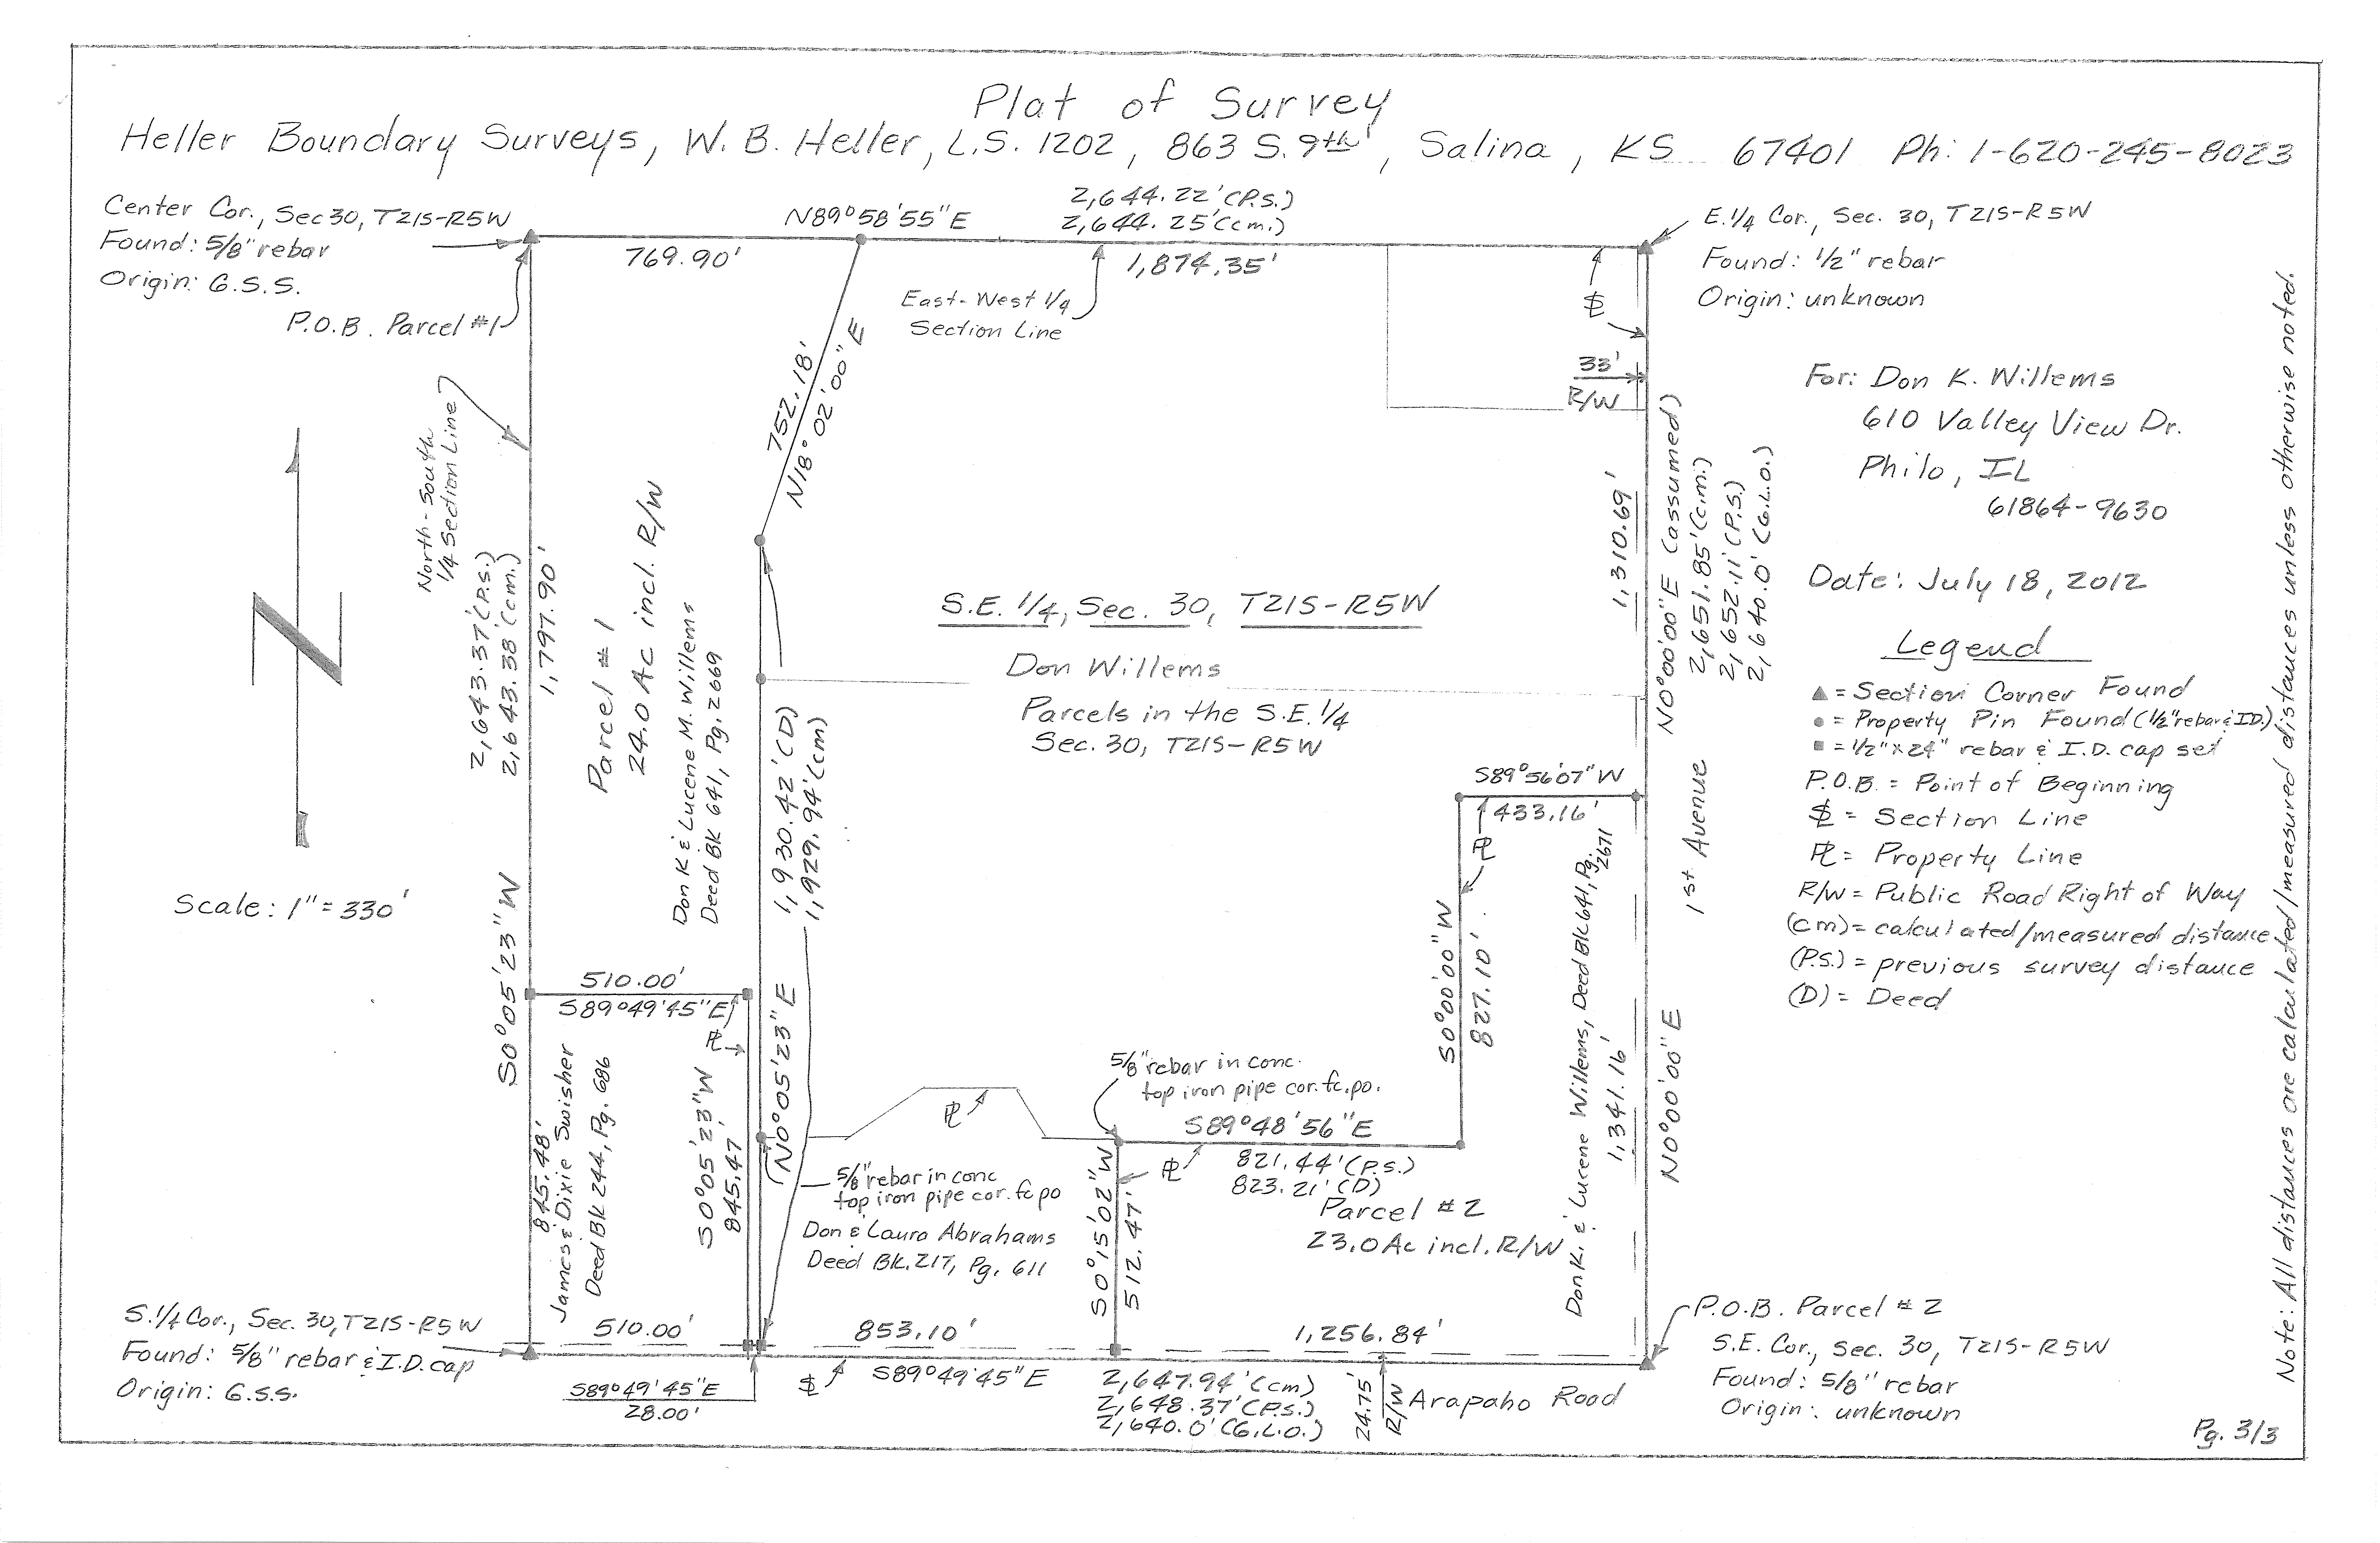 Plat of Survey
Heller Boundary Surveys, W. B. Heller, L.S. 1202, 863 S. 9th, Salina, KS 67401 Ph: 1-620-245-8023
Center Cor., Sec 30, T21S-R5W
Found: 5/8" rebar
Origin: G.S.S.
P.O.B. Parcel #1
N89°58'55"E
2,644.22' (P.S.)
2,644.25' (cm.)
769.90'
1,874.35'
East-West 1/4
Section Line
E. 1/4 Cor., Sec. 30, T21S-R5W
Found: 1/2" rebar
Origin: unknown
33'
R/W
752.18'
N18°02'00"E
North-South
1/4 Section Line
2,643.37' (P.S.)
2,643.38' (cm.)
1,797.90'
S0°05'23"W
Parcel #1
24.0 Ac incl. R/W
Don K & Lucene M. Willems
Deed BK 641, Pg. 2669
S.E. 1/4, Sec. 30, T21S-R5W
Don Willems
Parcels in the S.E. 1/4
Sec. 30, T21S-R5W
1,310.69'
N0°00'00"E (assumed)
2,651.85' (c.m.)
2,652.11' (P.S.)
2,640.0' (G.L.O.)
For: Don K. Willems
610 Valley View Dr.
Philo, IL
61864-9630
Date: July 18, 2012
Legend
▲ = Section Corner Found
● = Property Pin Found (1/2" rebar & I.D.)
■ = 1/2" x 24" rebar & I.D. cap set
P.O.B. = Point of Beginning
SL = Section Line
PL = Property Line
R/W = Public Road Right of Way
(cm) = calculated/measured distance
(P.S.) = previous survey distance
(D) = Deed
Note: All distances are calculated/measured distances unless otherwise noted.
Scale: 1" = 330'
1,930.42' (D)
1,929.94' (cm)
N0°05'23"E
S89°56'07"W
433.16'
PL
S0°00'00"W
827.10'
1st Avenue
Don K. & Lucene Willems, Deed BK 641, Pg. 2671
1,341.16'
N0°00'00"E
510.00'
S89°49'45"E
PL
James & Dixie Swisher
Deed BK 244, Pg. 686
845.48'
S0°05'23"W
845.47'
PL
5/8" rebar in conc.
top iron pipe cor. fc. po.
S89°48'56"E
821.44' (P.S.)
823.21' (D)
PL
Parcel #2
23.0 Ac incl. R/W
5/8" rebar in conc
top iron pipe cor. fc po
Don & Laura Abrahams
Deed BK. 217, Pg. 611
S0°15'02"W
512.47'
S. 1/4 Cor., Sec. 30, T21S-R5W
Found: 5/8" rebar & I.D. cap
Origin: G.S.S.
510.00'
853.10'
1,256.84'
S89°49'45"E
28.00'
SL
S89°49'45"E
2,647.94' (cm)
2,648.37' (P.S.)
2,640.0' (G.L.O.)
24.75'
R/W
Arapaho Road
P.O.B. Parcel #2
S.E. Cor., Sec. 30, T21S-R5W
Found: 5/8" rebar
Origin: unknown
Pg. 3/3
SL
N